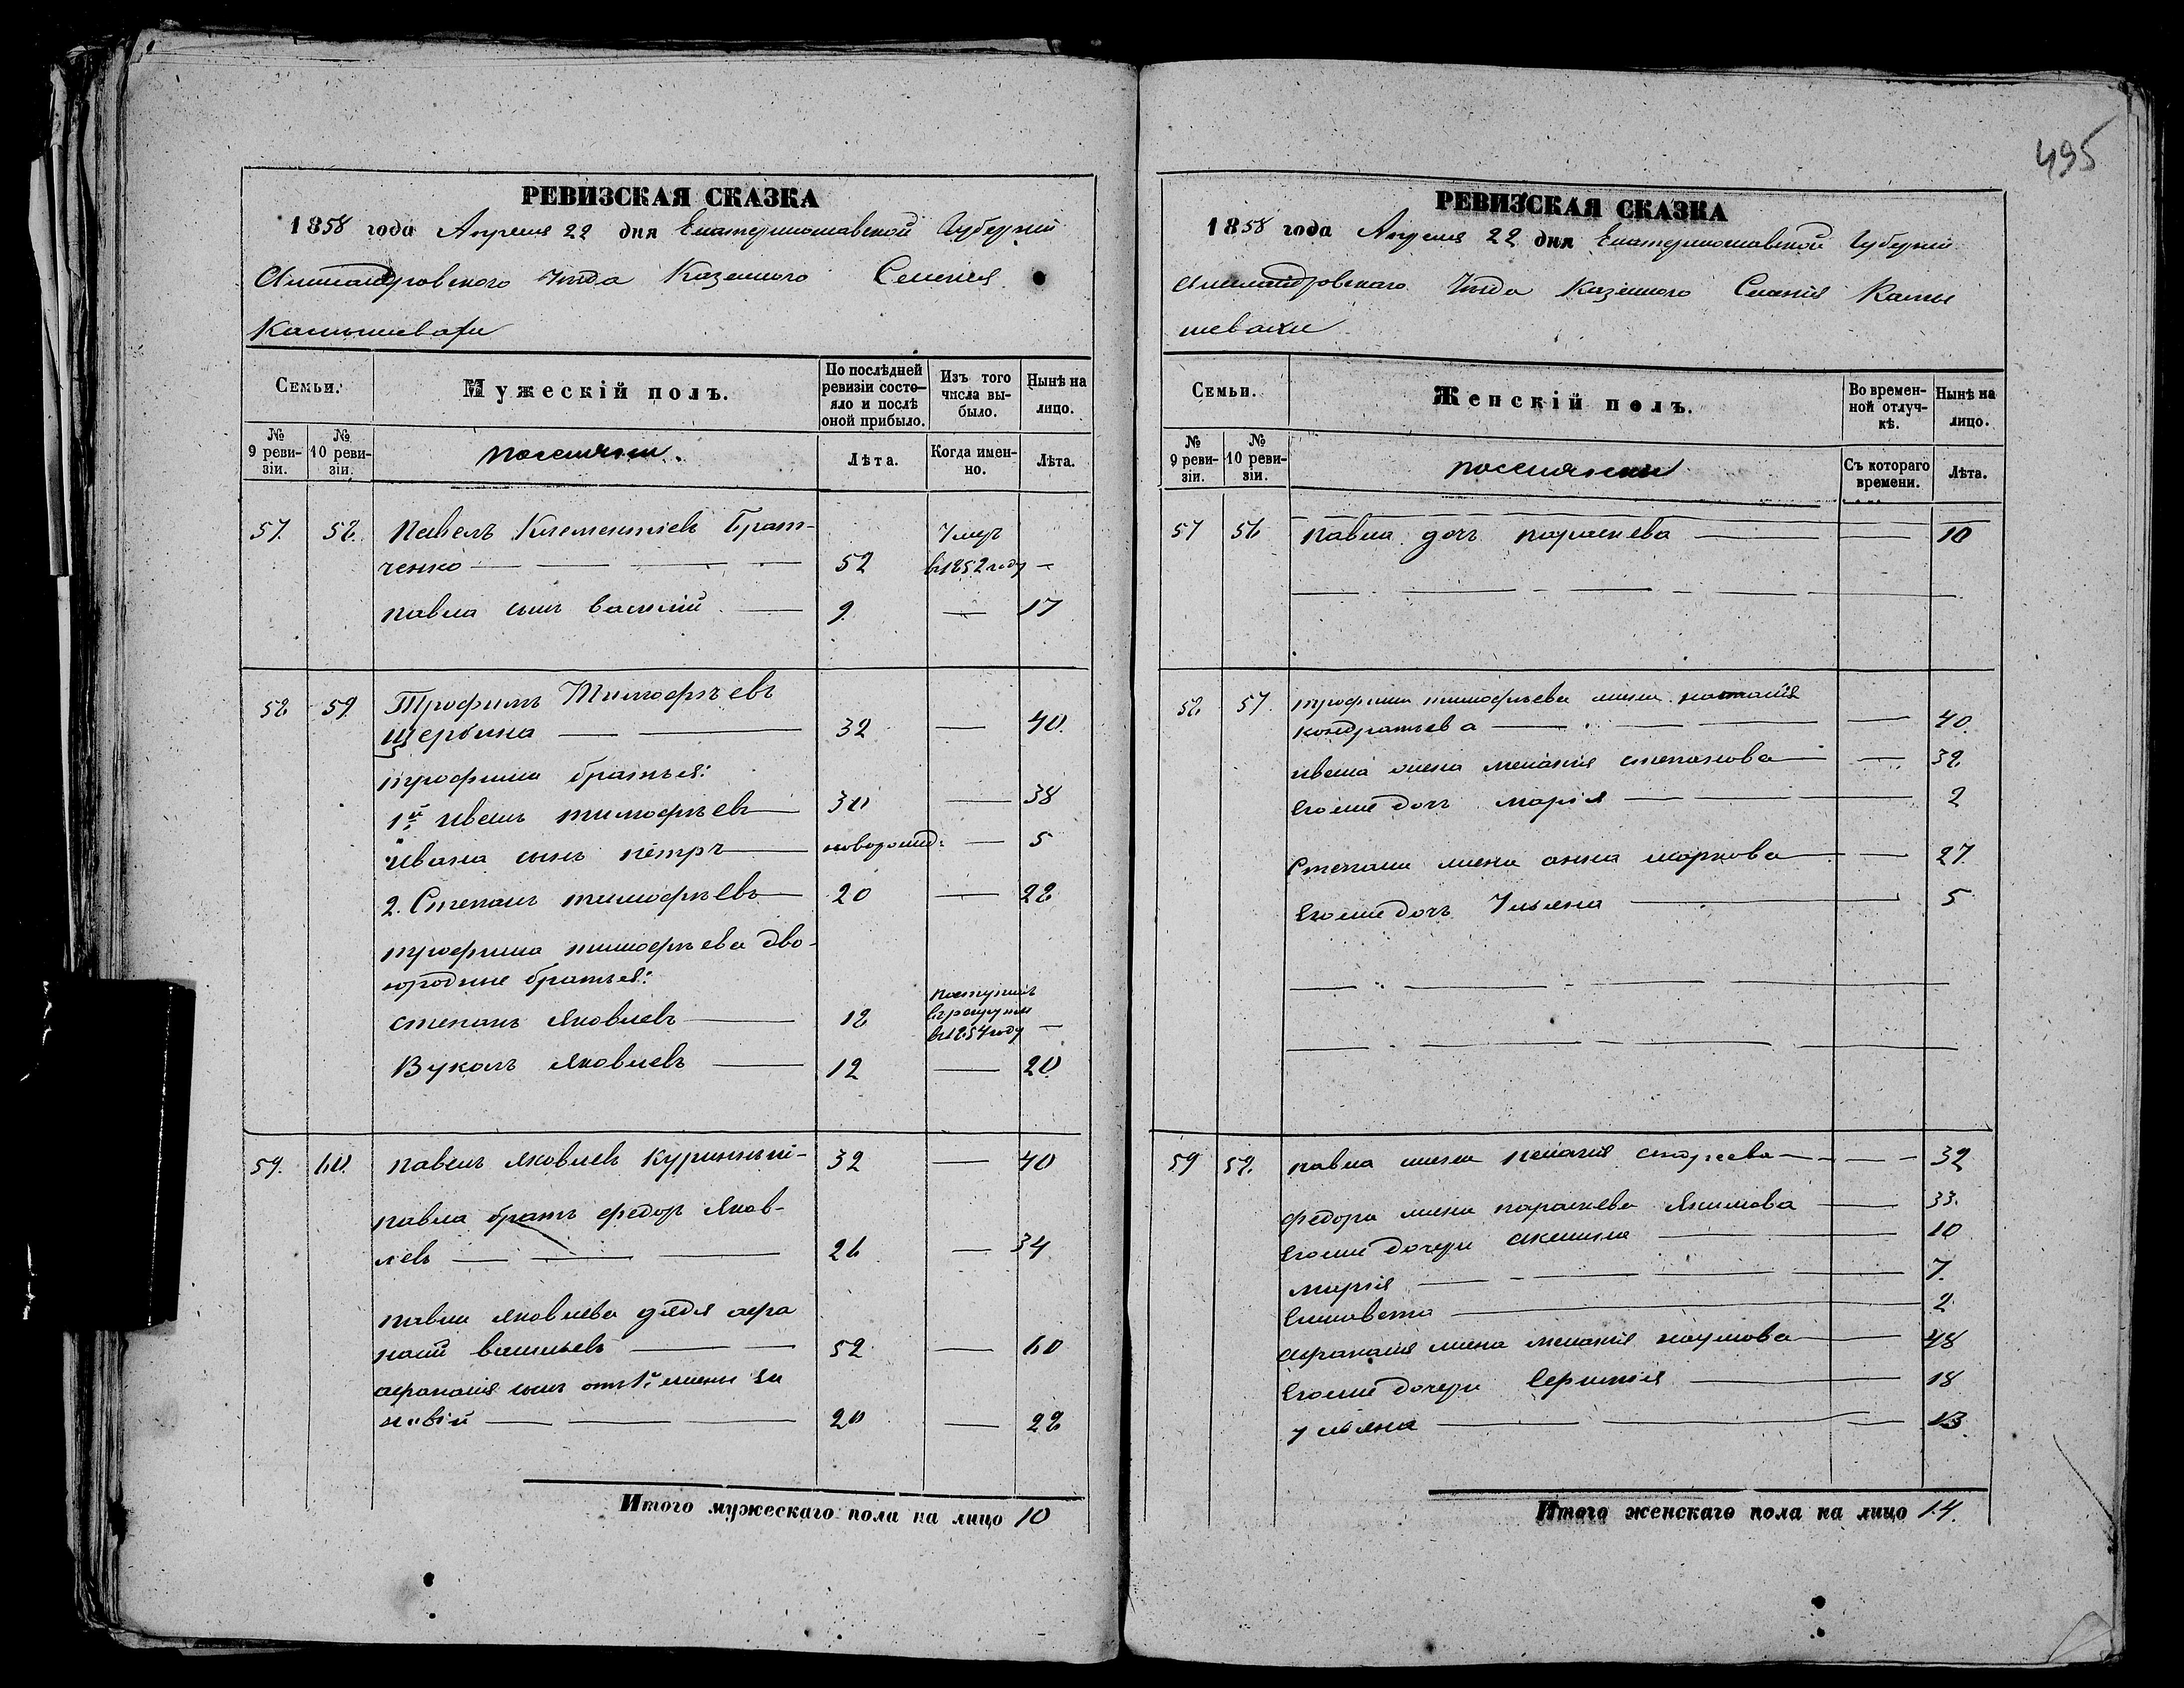 495
РЕВИЗСКАЯ СКАЗКА
1858 года Апреля 22 дня Екатеринославской Губернии
Александровского Уѣзда Казенного Селения
Камышевахи
Семьи.
Мужескій полъ.
По послѣдней ревизіи состояло и послѣ оной прибыло.
Изъ того числа выбыло.
Нынѣ на лицо.
№ 9 ревизіи.
№ 10 ревизіи.
поселяни.
Лѣта.
Когда именно.
Лѣта.
57. 58. Павелъ Клементіевъ Брат-
Умер
ченко 52 въ 1852 году —
павла сынъ василій 9. — 17
58 59. Трофимъ Тимофѣевъ
Щербина 32 — 40.
трофима братья:
1й иванъ тимофѣевъ 30 — 38
ивана сынъ петръ новорожд: — 5
2. Степанъ тимофѣевъ 20 — 28
трофима тимофѣева дво-
юродные братья:
степанъ яковлевъ 18 поступилъ
въ рекруты
въ 1854 году —
Вуколъ яковлевъ 12 — 20.
59. 60. павелъ яковлевъ куринный- 32 — 40
павла братъ федор яков-
левъ 26 — 34
павла яковлева дядя афа
насій васильевъ 52 — 60
афанасія сынъ отъ 1й жены зи
новій 20 — 28
Итого мужескаго пола на лицо 10
РЕВИЗСКАЯ СКАЗКА
1858 года Апреля 22 дня Екатеринославской Губернии
Александровскаго Уѣзда Казенного Селенія Камы
шевахи
Семьи.
Женскій полъ.
Во временной отлучкѣ.
Нынѣ на лицо.
№ 9 ревизіи.
№ 10 ревизіи.
поселянки
Съ котораго времени.
Лѣта.
57 56 павла дочь параскева — 10
58 57. трофима тимофѣева жена наталія
кондратьева — 40.
ивана жена меланія степанова — 38
Егоже дочь марія 2
Степана жена анна маркова — 27.
Егоже дочь Ульяна 5
59 58. павла жена пелагія 32
федора жена параскева Якимова — 33.
Егоже дочери аксинья 10
марія 7.
Елисавета 2
афанасія жена меланія наумова — 48
Егоже дочери 18
ульяна — 13.
Итого женскаго пола на лицо 14.